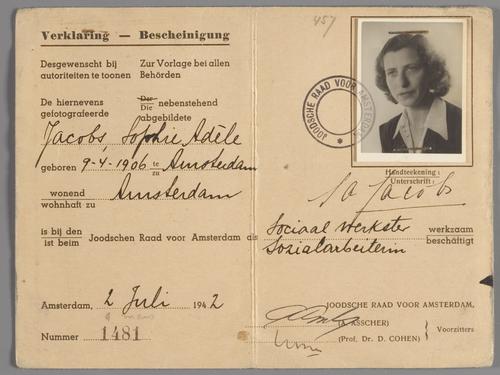 457
Verklaring — Bescheinigung
Desgewenscht bij autoriteiten te toonen
Zur Vorlage bei allen Behörden
De hiernevens gefotografeerde
Der Die nebenstehend abgebildete
Jacobs, Sophie Adèle
geboren 9-4-1906 te zu Amsterdam
wonend wohnhaft zu Amsterdam
is bij den ist beim Joodschen Raad voor Amsterdam als
Amsterdam, 2 Juli 1942
Nummer 1481
JOODSCHE RAAD VOOR AMSTERDAM
Handteekening:
Unterschrift:
Sa Jacobs
Sociaal werkster werkzaam
Sozialarbeiterin beschäftigt
JOODSCHE RAAD VOOR AMSTERDAM,
(A. ASSCHER)
(Prof. Dr. D. COHEN)
Voorzitters